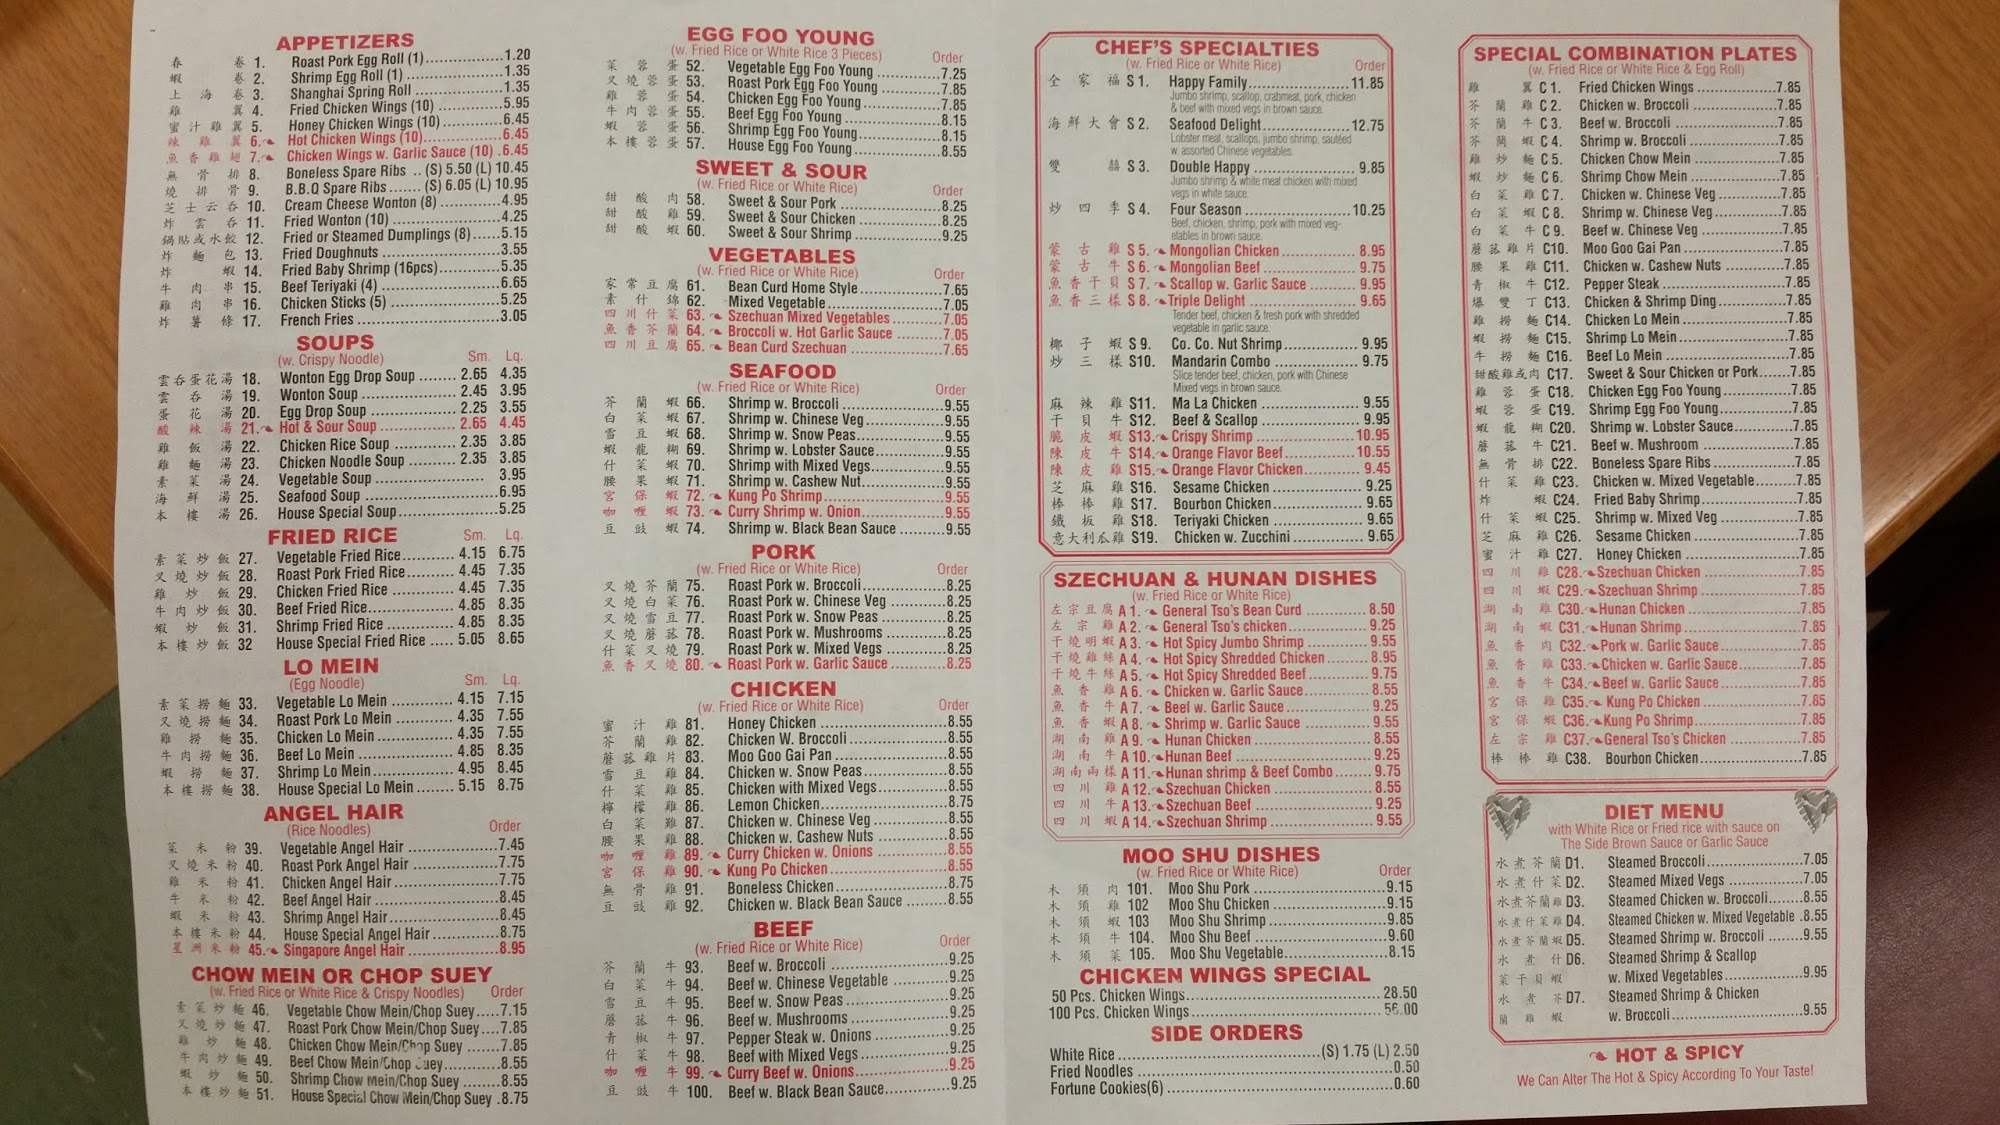 APPETIZERS
春卷 1. Roast Pork Egg Roll (1) 1.20
蝦卷 2. Shrimp Egg Roll (1) 1.35
上海卷 3. Shanghai Spring Roll 1.35
雞翼 4. Fried Chicken Wings (10) 5.95
蜜汁雞翼 5. Honey Chicken Wings (10) 6.45
辣雞翼 6. Hot Chicken Wings (10) 6.45
魚香雞翅 7. Chicken Wings w. Garlic Sauce (10) 6.45
無骨排 8. Boneless Spare Ribs (S) 5.50 (L) 10.45
燒排骨 9. B.B.Q Spare Ribs (S) 6.05 (L) 10.95
芝士云吞 10. Cream Cheese Wonton (8) 4.95
炸雲吞 11. Fried Wonton (10) 4.25
鍋貼或水餃 12. Fried or Steamed Dumplings (8) 5.15
炸麵包 13. Fried Doughnuts 3.55
炸蝦 14. Fried Baby Shrimp (16pcs) 5.35
牛肉串 15. Beef Teriyaki (4) 6.65
雞肉串 16. Chicken Sticks (5) 5.25
炸薯條 17. French Fries 3.05
SOUPS
(w. Crispy Noodle) Sm. Lq.
雲吞蛋花湯 18. Wonton Egg Drop Soup 2.65 4.35
雲吞湯 19. Wonton Soup 2.45 3.95
蛋花湯 20. Egg Drop Soup 2.25 3.55
酸辣湯 21. Hot & Sour Soup 2.65 4.45
雞飯湯 22. Chicken Rice Soup 2.35 3.85
雞麵湯 23. Chicken Noodle Soup 2.35 3.85
素菜湯 24. Vegetable Soup 3.95
海鮮湯 25. Seafood Soup 6.95
本樓湯 26. House Special Soup 5.25
FRIED RICE Sm. Lq.
素菜炒飯 27. Vegetable Fried Rice 4.15 6.75
叉燒炒飯 28. Roast Pork Fried Rice 4.45 7.35
雞炒飯 29. Chicken Fried Rice 4.45 7.35
牛肉炒飯 30. Beef Fried Rice 4.85 8.35
蝦炒飯 31. Shrimp Fried Rice 4.85 8.35
本樓炒飯 32 House Special Fried Rice 5.05 8.65
LO MEIN
(Egg Noodle) Sm. Lq.
素菜撈麵 33. Vegetable Lo Mein 4.15 7.15
叉燒撈麵 34. Roast Pork Lo Mein 4.35 7.55
雞撈麵 35. Chicken Lo Mein 4.35 7.55
牛肉撈麵 36. Beef Lo Mein 4.85 8.35
蝦撈麵 37. Shrimp Lo Mein 4.95 8.45
本樓撈麵 38. House Special Lo Mein 5.15 8.75
ANGEL HAIR
(Rice Noodles) Order
菜米粉 39. Vegetable Angel Hair 7.45
叉燒米粉 40. Roast Pork Angel Hair 7.75
雞米粉 41. Chicken Angel Hair 7.75
牛米粉 42. Beef Angel Hair 8.45
蝦米粉 43. Shrimp Angel Hair 8.45
本樓米粉 44. House Special Angel Hair 8.75
星洲米粉 45. Singapore Angel Hair 8.95
CHOW MEIN OR CHOP SUEY
(w. Fried Rice or White Rice & Crispy Noodles) Order
素菜炒麵 46. Vegetable Chow Mein/Chop Suey 7.15
叉燒炒麵 47. Roast Pork Chow Mein/Chop Suey 7.85
雞炒麵 48. Chicken Chow Mein/Chop Suey 7.85
牛肉炒麵 49. Beef Chow Mein/Chop Suey 8.55
蝦炒麵 50. Shrimp Chow Mein/Chop Suey 8.55
本樓炒麵 51. House Special Chow Mein/Chop Suey 8.75
EGG FOO YOUNG
(w. Fried Rice or White Rice 3 Pieces) Order
菜蓉蛋 52. Vegetable Egg Foo Young 7.25
叉燒蓉蛋 53. Roast Pork Egg Foo Young 7.85
雞蓉蛋 54. Chicken Egg Foo Young 7.85
牛肉蓉蛋 55. Beef Egg Foo Young 8.15
蝦蓉蛋 56. Shrimp Egg Foo Young 8.15
本樓蓉蛋 57. House Egg Foo Young 8.55
SWEET & SOUR
(w. Fried Rice or White Rice) Order
甜酸肉 58. Sweet & Sour Pork 8.25
甜酸雞 59. Sweet & Sour Chicken 8.25
甜酸蝦 60. Sweet & Sour Shrimp 9.25
VEGETABLES
(w. Fried Rice or White Rice) Order
家常豆腐 61. Bean Curd Home Style 7.65
素什錦 62. Mixed Vegetable 7.05
四川什菜 63. Szechuan Mixed Vegetables 7.05
魚香芥蘭 64. Broccoli w. Hot Garlic Sauce 7.05
四川豆腐 65. Bean Curd Szechuan 7.65
SEAFOOD
(w. Fried Rice or White Rice) Order
芥蘭蝦 66. Shrimp w. Broccoli 9.55
白菜蝦 67. Shrimp w. Chinese Veg 9.55
雪豆蝦 68. Shrimp w. Snow Peas 9.55
蝦龍糊 69. Shrimp w. Lobster Sauce 9.55
什菜蝦 70. Shrimp with Mixed Vegs 9.55
腰果蝦 71. Shrimp w. Cashew Nut 9.55
宮保蝦 72. Kung Po Shrimp 9.55
咖喱蝦 73. Curry Shrimp w. Onion 9.55
豆豉蝦 74. Shrimp w. Black Bean Sauce 9.55
PORK
(w. Fried Rice or White Rice) Order
叉燒芥蘭 75. Roast Pork w. Broccoli 8.25
叉燒白菜 76. Roast Pork w. Chinese Veg 8.25
叉燒雪豆 77. Roast Pork w. Snow Peas 8.25
叉燒蘑菇 78. Roast Pork w. Mushrooms 8.25
什菜叉燒 79. Roast Pork w. Mixed Vegs 8.25
魚香叉燒 80. Roast Pork w. Garlic Sauce 8.25
CHICKEN
(w. Fried Rice or White Rice) Order
蜜汁雞 81. Honey Chicken 8.55
芥蘭雞 82. Chicken W. Broccoli 8.55
蘑菇雞片 83. Moo Goo Gai Pan 8.55
雪豆雞 84. Chicken w. Snow Peas 8.55
什菜雞 85. Chicken with Mixed Vegs 8.55
檸檬雞 86. Lemon Chicken 8.75
白菜雞 87. Chicken w. Chinese Veg 8.55
腰果雞 88. Chicken w. Cashew Nuts 8.55
咖喱雞 89. Curry Chicken w. Onions 8.55
宮保雞 90. Kung Po Chicken 8.55
無骨雞 91. Boneless Chicken 8.75
豆豉雞 92. Chicken w. Black Bean Sauce 8.55
BEEF
(w. Fried Rice or White Rice) Order
芥蘭牛 93. Beef w. Broccoli 9.25
白菜牛 94. Beef w. Chinese Vegetable 9.25
雪豆牛 95. Beef w. Snow Peas 9.25
蘑菇牛 96. Beef w. Mushrooms 9.25
青椒牛 97. Pepper Steak w. Onions 9.25
什菜牛 98. Beef with Mixed Vegs 9.25
咖喱牛 99. Curry Beef w. Onions 9.25
豆豉牛 100. Beef w. Black Bean Sauce 9.25
CHEF'S SPECIALTIES
(w. Fried Rice or White Rice) Order
全家福 S 1. Happy Family 11.85
Jumbo shrimp, scallop, crabmeat, pork, chicken
& beef with mixed vegs in brown sauce.
海鮮大會 S 2. Seafood Delight 12.75
Lobster meat, scallops, jumbo shrimp, sauteed
w. assorted Chinese vegetables.
雙囍 S 3. Double Happy 9.85
Jumbo shrimp & white meat chicken with mixed
vegs in white sauce.
炒四季 S 4. Four Season 10.25
Beef, chicken, shrimp, pork with mixed veg-
etables in brown sauce.
蒙古雞 S 5. Mongolian Chicken 8.95
蒙古牛 S 6. Mongolian Beef 9.75
魚香干貝 S 7. Scallop w. Garlic Sauce 9.95
魚香三樣 S 8. Triple Delight 9.65
Tender beef, chicken & fresh pork with shredded
vegetable in garlic sauce.
椰子蝦 S 9. Co. Co. Nut Shrimp 9.95
炒三樣 S10. Mandarin Combo 9.75
Slice tender beef, chicken, pork with Chinese
Mixed vegs in brown sauce.
麻辣雞 S11. Ma La Chicken 9.55
干貝牛 S12. Beef & Scallop 9.95
脆皮蝦 S13. Crispy Shrimp 10.95
陳皮牛 S14. Orange Flavor Beef 10.55
陳皮雞 S15. Orange Flavor Chicken 9.45
芝麻雞 S16. Sesame Chicken 9.25
棒棒雞 S17. Bourbon Chicken 9.65
鐵板雞 S18. Teriyaki Chicken 9.65
意大利瓜雞 S19. Chicken w. Zucchini 9.65
SZECHUAN & HUNAN DISHES
(w. Fried Rice or White Rice)
左宗豆腐 A 1. General Tso's Bean Curd 8.50
左宗雞 A 2. General Tso's chicken 9.25
干燒明蝦 A 3. Hot Spicy Jumbo Shrimp 9.55
干燒雞絲 A 4. Hot Spicy Shredded Chicken 8.95
干燒牛絲 A 5. Hot Spicy Shredded Beef 9.75
魚香雞 A 6. Chicken w. Garlic Sauce 8.55
魚香牛 A 7. Beef w. Garlic Sauce 9.25
魚香蝦 A 8. Shrimp w. Garlic Sauce 9.55
湖南雞 A 9. Hunan Chicken 8.55
湖南牛 A 10. Hunan Beef 9.25
湖南兩樣 A 11. Hunan shrimp & Beef Combo 9.75
四川雞 A 12. Szechuan Chicken 8.55
四川牛 A 13. Szechuan Beef 9.25
四川蝦 A 14. Szechuan Shrimp 9.55
MOO SHU DISHES
(w. Fried Rice or White Rice) Order
木須肉 101. Moo Shu Pork 9.15
木須雞 102 Moo Shu Chicken 9.15
木須蝦 103 Moo Shu Shrimp 9.85
木須牛 104. Moo Shu Beef 9.60
木須菜 105. Moo Shu Vegetable 8.15
CHICKEN WINGS SPECIAL
50 Pcs. Chicken Wings 28.50
100 Pcs. Chicken Wings 56.00
SIDE ORDERS
White Rice (S) 1.75 (L) 2.50
Fried Noodles 0.50
Fortune Cookies(6) 0.60
SPECIAL COMBINATION PLATES
(w. Fried Rice or White Rice & Egg Roll)
雞翼 C 1. Fried Chicken Wings 7.85
芥蘭雞 C 2. Chicken w. Broccoli 7.85
芥蘭牛 C 3. Beef w. Broccoli 7.85
芥蘭蝦 C 4. Shrimp w. Broccoli 7.85
雞炒麵 C 5. Chicken Chow Mein 7.85
蝦炒麵 C 6. Shrimp Chow Mein 7.85
白菜雞 C 7. Chicken w. Chinese Veg 7.85
白菜蝦 C 8. Shrimp w. Chinese Veg 7.85
白菜牛 C 9. Beef w. Chinese Veg 7.85
蘑菇雞片 C10. Moo Goo Gai Pan 7.85
腰果雞 C11. Chicken w. Cashew Nuts 7.85
青椒牛 C12. Pepper Steak 7.85
爆雙丁 C13. Chicken & Shrimp Ding 7.85
雞撈麵 C14. Chicken Lo Mein 7.85
蝦撈麵 C15. Shrimp Lo Mein 7.85
牛撈麵 C16. Beef Lo Mein 7.85
甜酸雞或肉 C17. Sweet & Sour Chicken or Pork 7.85
雞蓉蛋 C18. Chicken Egg Foo Young 7.85
蝦蓉蛋 C19. Shrimp Egg Foo Young 7.85
蝦龍糊 C20. Shrimp w. Lobster Sauce 7.85
蘑菇牛 C21. Beef w. Mushroom 7.85
無骨排 C22. Boneless Spare Ribs 7.85
什菜雞 C23. Chicken w. Mixed Vegetable 7.85
炸蝦 C24. Fried Baby Shrimp 7.85
什菜蝦 C25. Shrimp w. Mixed Veg 7.85
芝麻雞 C26. Sesame Chicken 7.85
蜜汁雞 C27. Honey Chicken 7.85
四川雞 C28. Szechuan Chicken 7.85
四川蝦 C29. Szechuan Shrimp 7.85
湖南雞 C30. Hunan Chicken 7.85
湖南蝦 C31. Hunan Shrimp 7.85
魚香肉 C32. Pork w. Garlic Sauce 7.85
魚香雞 C33. Chicken w. Garlic Sauce 7.85
魚香牛 C34. Beef w. Garlic Sauce 7.85
宮保雞 C35. Kung Po Chicken 7.85
宮保蝦 C36. Kung Po Shrimp 7.85
左宗雞 C37. General Tso's Chicken 7.85
棒棒雞 C38. Bourbon Chicken 7.85
DIET MENU
with White Rice or Fried rice with sauce on
The Side Brown Sauce or Garlic Sauce
水煮芥蘭 D1. Steamed Broccoli 7.05
水煮什菜 D2. Steamed Mixed Vegs 7.05
水煮芥蘭雞 D3. Steamed Chicken w. Broccoli 8.55
水煮什菜雞 D4. Steamed Chicken w. Mixed Vegetable 8.55
水煮芥蘭蝦 D5. Steamed Shrimp w. Broccoli 9.55
水煮什 D6. Steamed Shrimp & Scallop
菜干貝蝦 w. Mixed Vegetables 9.95
水煮芥 D7. Steamed Shrimp & Chicken
蘭雞蝦 w. Broccoli 9.55
HOT & SPICY
We Can Alter The Hot & Spicy According To Your Taste!